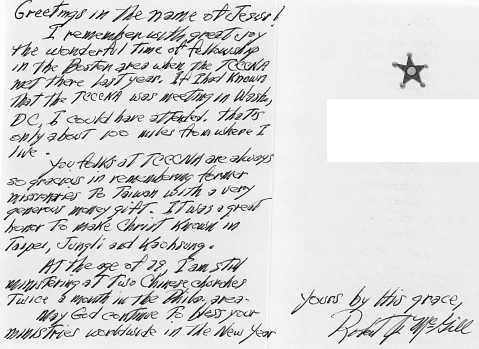 Greetings in the name of Jesus!
I remember with great joy
the wonderful time of fellowship
in the Boston area when the TCCCNA
met there last year. If I had known
that the TCCCNA was meeting in Wash.,
DC, I could have attended. That's
only about 100 miles from where I
live.
You folks at TCCCNA are always
so gracious in remembering former
missionaries to Taiwan with a very
generous money gift. It was a great
honor to make Christ known in
Taipei, Jungli and Kaohsung.
At the age of 79, I am still
ministering at two Chinese churches
twice a month in the Phila, area.
May God continue to bless your
ministries worldwide in the New Year
Yours by His grace,
Robert McGill